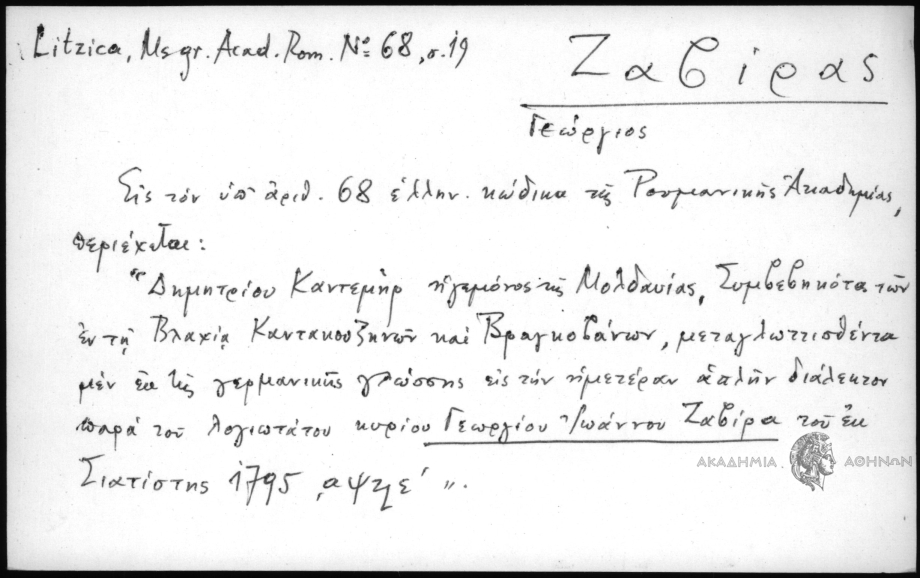 Litzica, Ms gr. Acad. Rom. Nº 68, σ. 19
Ζαβίρας
Γεώργιος
Εἰς τὸν ὑπ' ἀριθ. 68 ἑλλην. κώδικα τῆς Ρουμανικῆς Ἀκαδημίας,
περιέχεται:
"Δημητρίου Καντεμὴρ ἡγεμόνος τῆς Μολδαυίας, Συμβεβηκότα τῶν
ἐν τῇ Βλαχίᾳ Καντακουζηνῶν καὶ Βραγκοβάνων, μεταγλωττισθέντα
μὲν ἐκ τῆς γερμανικῆς γλώσσης εἰς τὴν ἡμετέραν ἁπλῆν διάλεκτον
παρὰ τοῦ λογιωτάτου κυρίου Γεωργίου Ἰωάννου Ζαβίρα τοῦ ἐκ
Σιατίστης 1795 ͵αψϟε΄ ".
ΑΚΑΔΗΜΙΑ ΑΘΗΝΩΝ